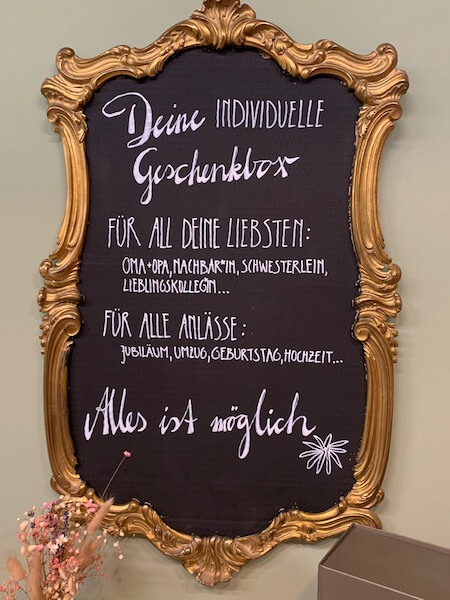 Deine INDIVIDUELLE
Geschenkbox
FÜR ALL DEINE LIEBSTEN:
OMA+OPA, NACHBAR*IN, SCHWESTERLEIN,
LIEBLINGSKOLLEG*IN...
FÜR ALLE ANLÄSSE:
JUBILÄUM, UMZUG, GEBURTSTAG, HOCHZEIT...
Alles ist möglich